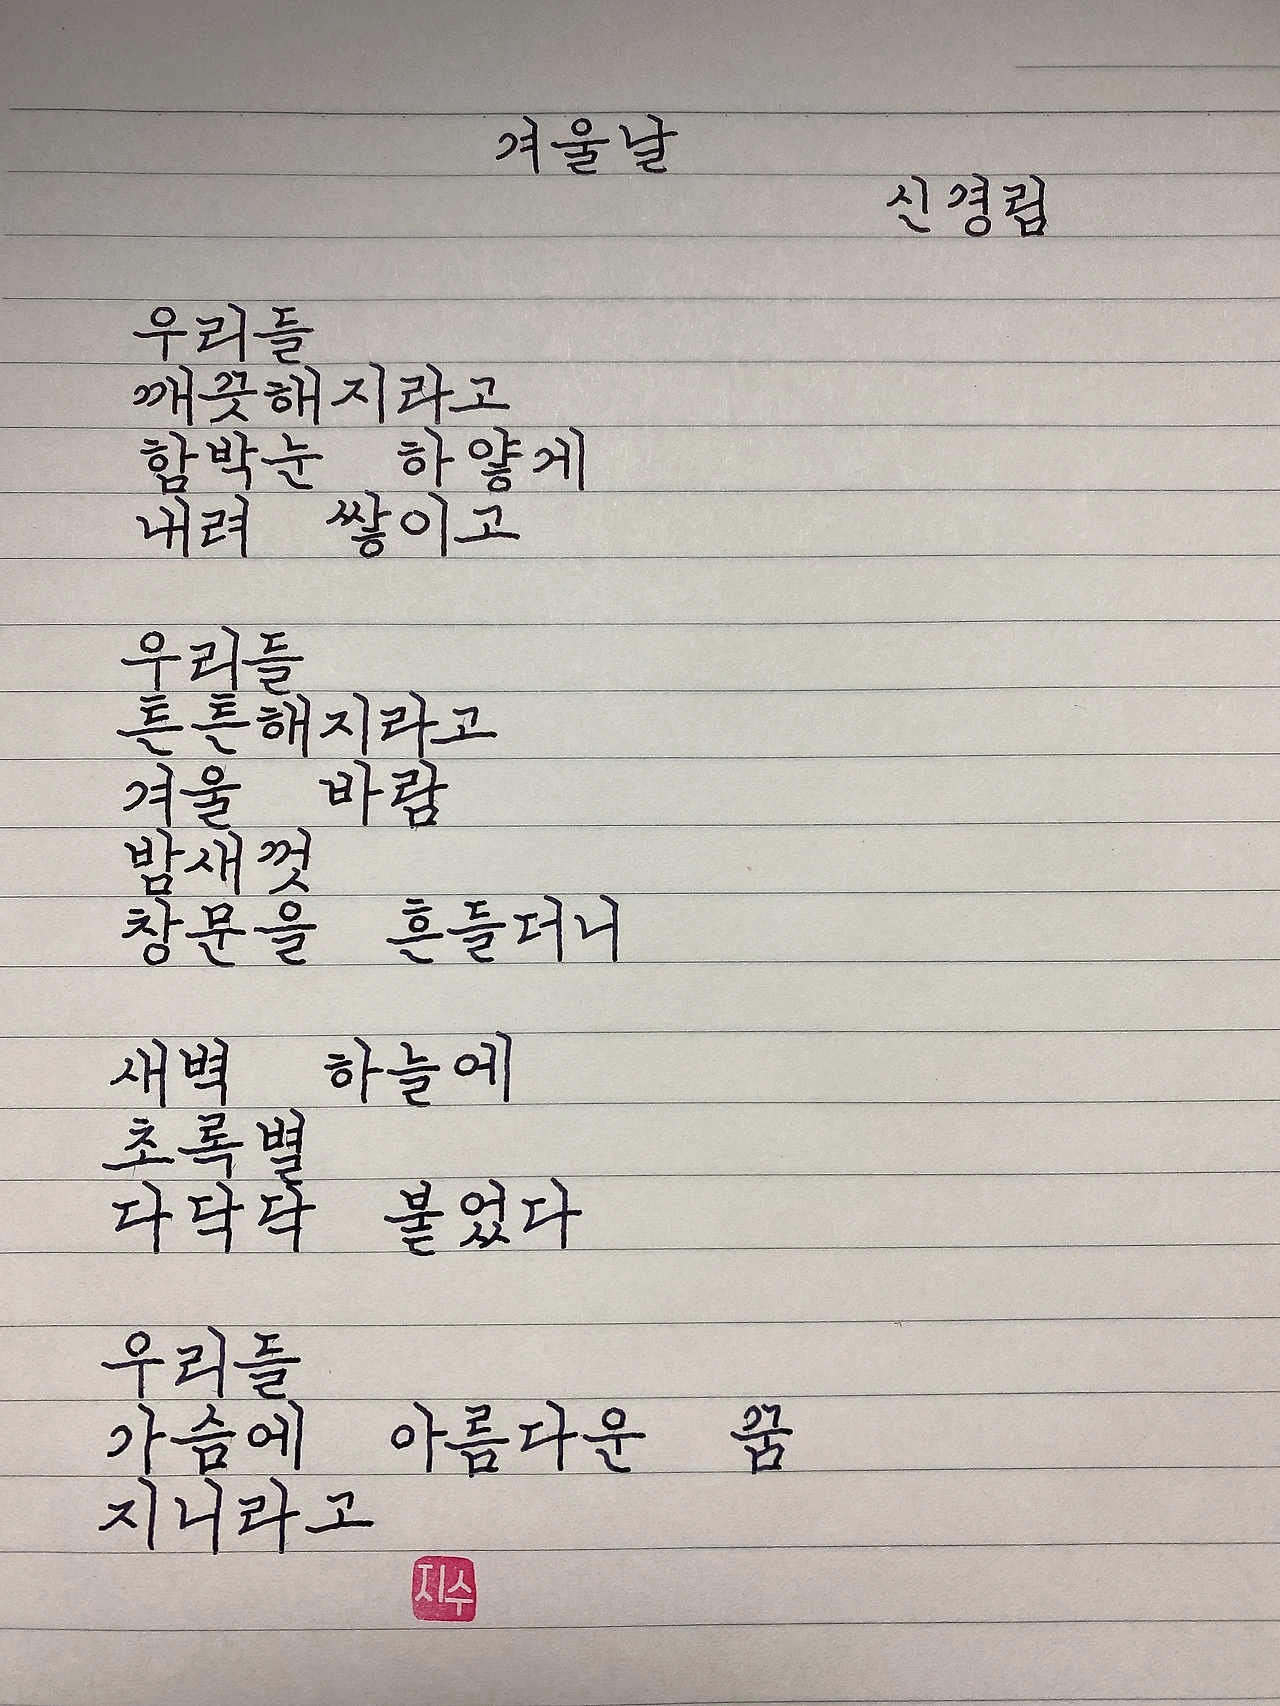 겨울날
신경림
우리들
깨끗해지라고
함박눈 하얗게
내려 쌓이고
우리들
튼튼해지라고
겨울 바람
밤새껏
창문을 흔들더니
새벽 하늘에
초록별
다닥닥 붙었다
우리들
가슴에 아름다운 꿈
지니라고
지수